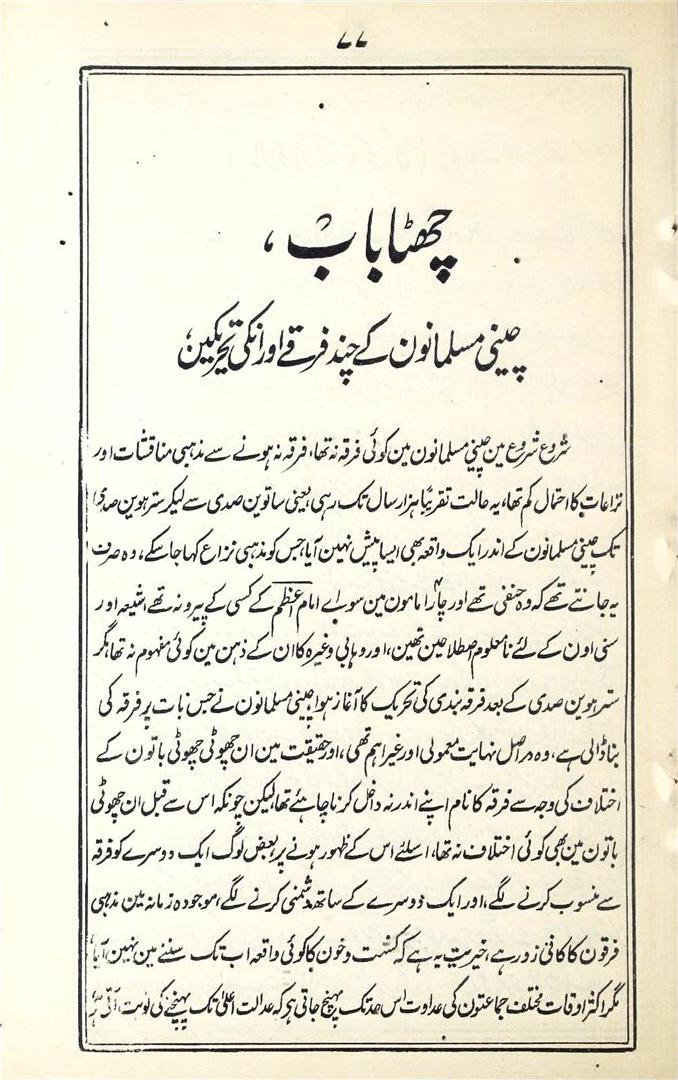 ۷۷
چھٹا باب،
چینی مسلمانون کے چند فرقے اور انکی تحریکین،
شروع شروع مین چینی مسلمانون مین کوئی فرقہ نہ تھا، فرقہ نہ ہونے سے مذہبی مناقشات اور
نزاعات کا احتمال کم تھا، یہ حالت تقریبًا ہزار سال تک رہی، یعنی ساتوین صدی سے لیکر سترہوین صدی
تک چینی مسلمانون کے اندر ایک واقعہ بھی ایسا پیش نہین آیا، جس کو مذہبی نزاع کہا جا سکے، وہ صرف
یہ جانتے تھے کہ وہ حنفی تھے اور چار امامون مین سواے امام اعظم کے کسی کے پیرو نہ تھے، شیعہ اور
سنی اون کے لئے نامعلوم اصطلاحین تھین، اور وہابی وغیرہ کا ان کے ذہن مین کوئی مفہوم نہ تھا، مگر
سترہوین صدی کے بعد فرقہ بندی کی تحریک کا آغاز ہوا، چینی مسلمانون نے جس بات پر فرقہ کی
بنا ڈالی ہے، وہ دراصل نہایت معمولی اور غیر اہم تھی، اور حقیقت مین ان چھوٹی چھوٹی باتون کے
اختلاف کی وجہ سے فرقہ کا نام اپنے اندر نہ داخل کرنا چاہئے تھا، لیکن چونکہ اس سے قبل ان چھوٹی
باتون مین بھی کوئی اختلاف نہ تھا، اسلئے اس کے ظہور ہونے پر بعض لوگ ایک دوسرے کو فرقہ
سے منسوب کرنے لگے، اور ایک دوسرے کے ساتھ دشمنی کرنے لگے، موجودہ زمانہ مین مذہبی
فرقون کا کافی زور ہے، خیریت یہ ہے کہ کشت و خون کا کوئی واقعہ اب تک سننے مین نہین آیا،
مگر اکثر اوقات مختلف جماعتون کی عداوت اس حد تک پہنچ جاتی ہر کہ عدالت اعلیٰ تک پہنچنے کی نوبت آتی ہر